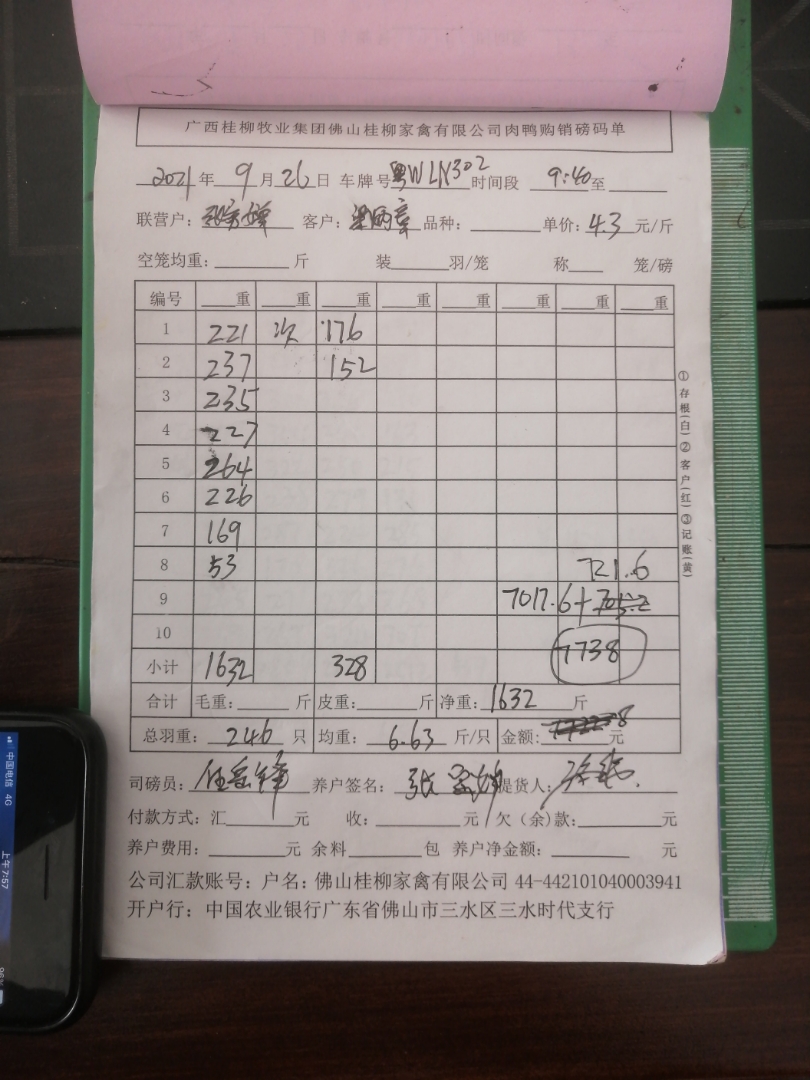 广西桂柳牧业集团佛山桂柳家禽有限公司肉鸭购销磅码单
2021年 9月 26日 车牌号粤WLN302 时间段 9:40至
联营户: 客户: 梁炳章 品种: 单价: 4.3元/斤
空笼均重: 斤 装 羽/笼 称 笼/磅
编号 重 重 重 重 重 重 重 重
1 221 次 176
2 237 152
3 235
4 227
5 264
6 226
7 169
8 53 721.6
9 7017.6+
10
小计 1632 328 7738
合计 毛重: 斤 皮重: 斤 净重: 1632 斤
总羽重: 246 只 均重: 6.63 斤/只 金额: 元
司磅员: 养户签名: 张 提货人:
付款方式: 汇 元 收: 元 欠(余)款: 元
养户费用: 元 余料 包 养户净金额: 元
公司汇款账号: 户名: 佛山桂柳家禽有限公司 44-442101040003941
开户行: 中国农业银行广东省佛山市三水区三水时代支行
①存根(白)②客户(红)③记账(黄)
中国电信 4G
上午7:57